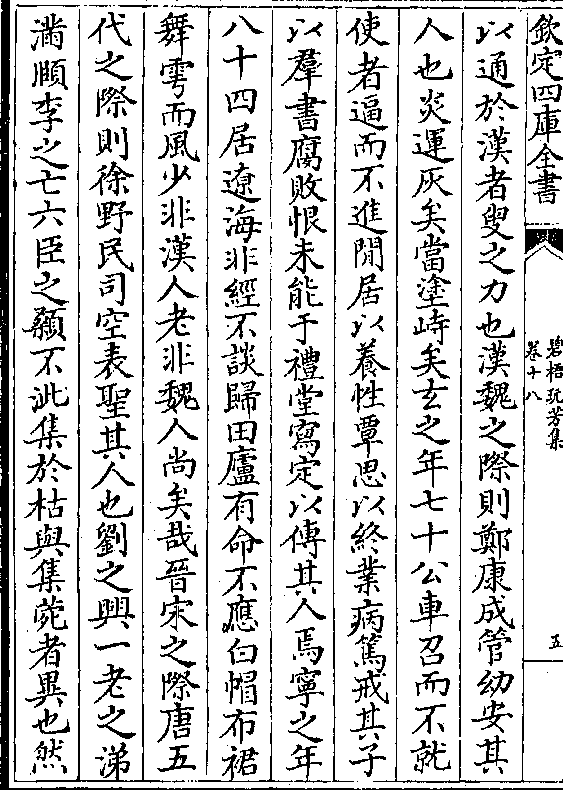 欽定四庫全書
碧梧玩芳集
卷十八
五
以通於漢者叟之力也漢魏之際則鄭康成管幼安其
人也炎運灰矣當塗峙矣玄之年七十公車召而不就
使者逼而不進閒居以養性覃思以終業病篤戒其子
以羣書腐敗恨未能于禮堂寫定以傳其人焉寧之年
八十四居遼海非經不談歸田廬有命不應白帽布裙
舞雩而風少非漢人老非魏人尚矣哉晉宋之際唐五
代之際則徐野民司空表聖其人也劉之興一老之涕
潸頤李之亡六臣之顙不泚集於枯與集菀者異也然